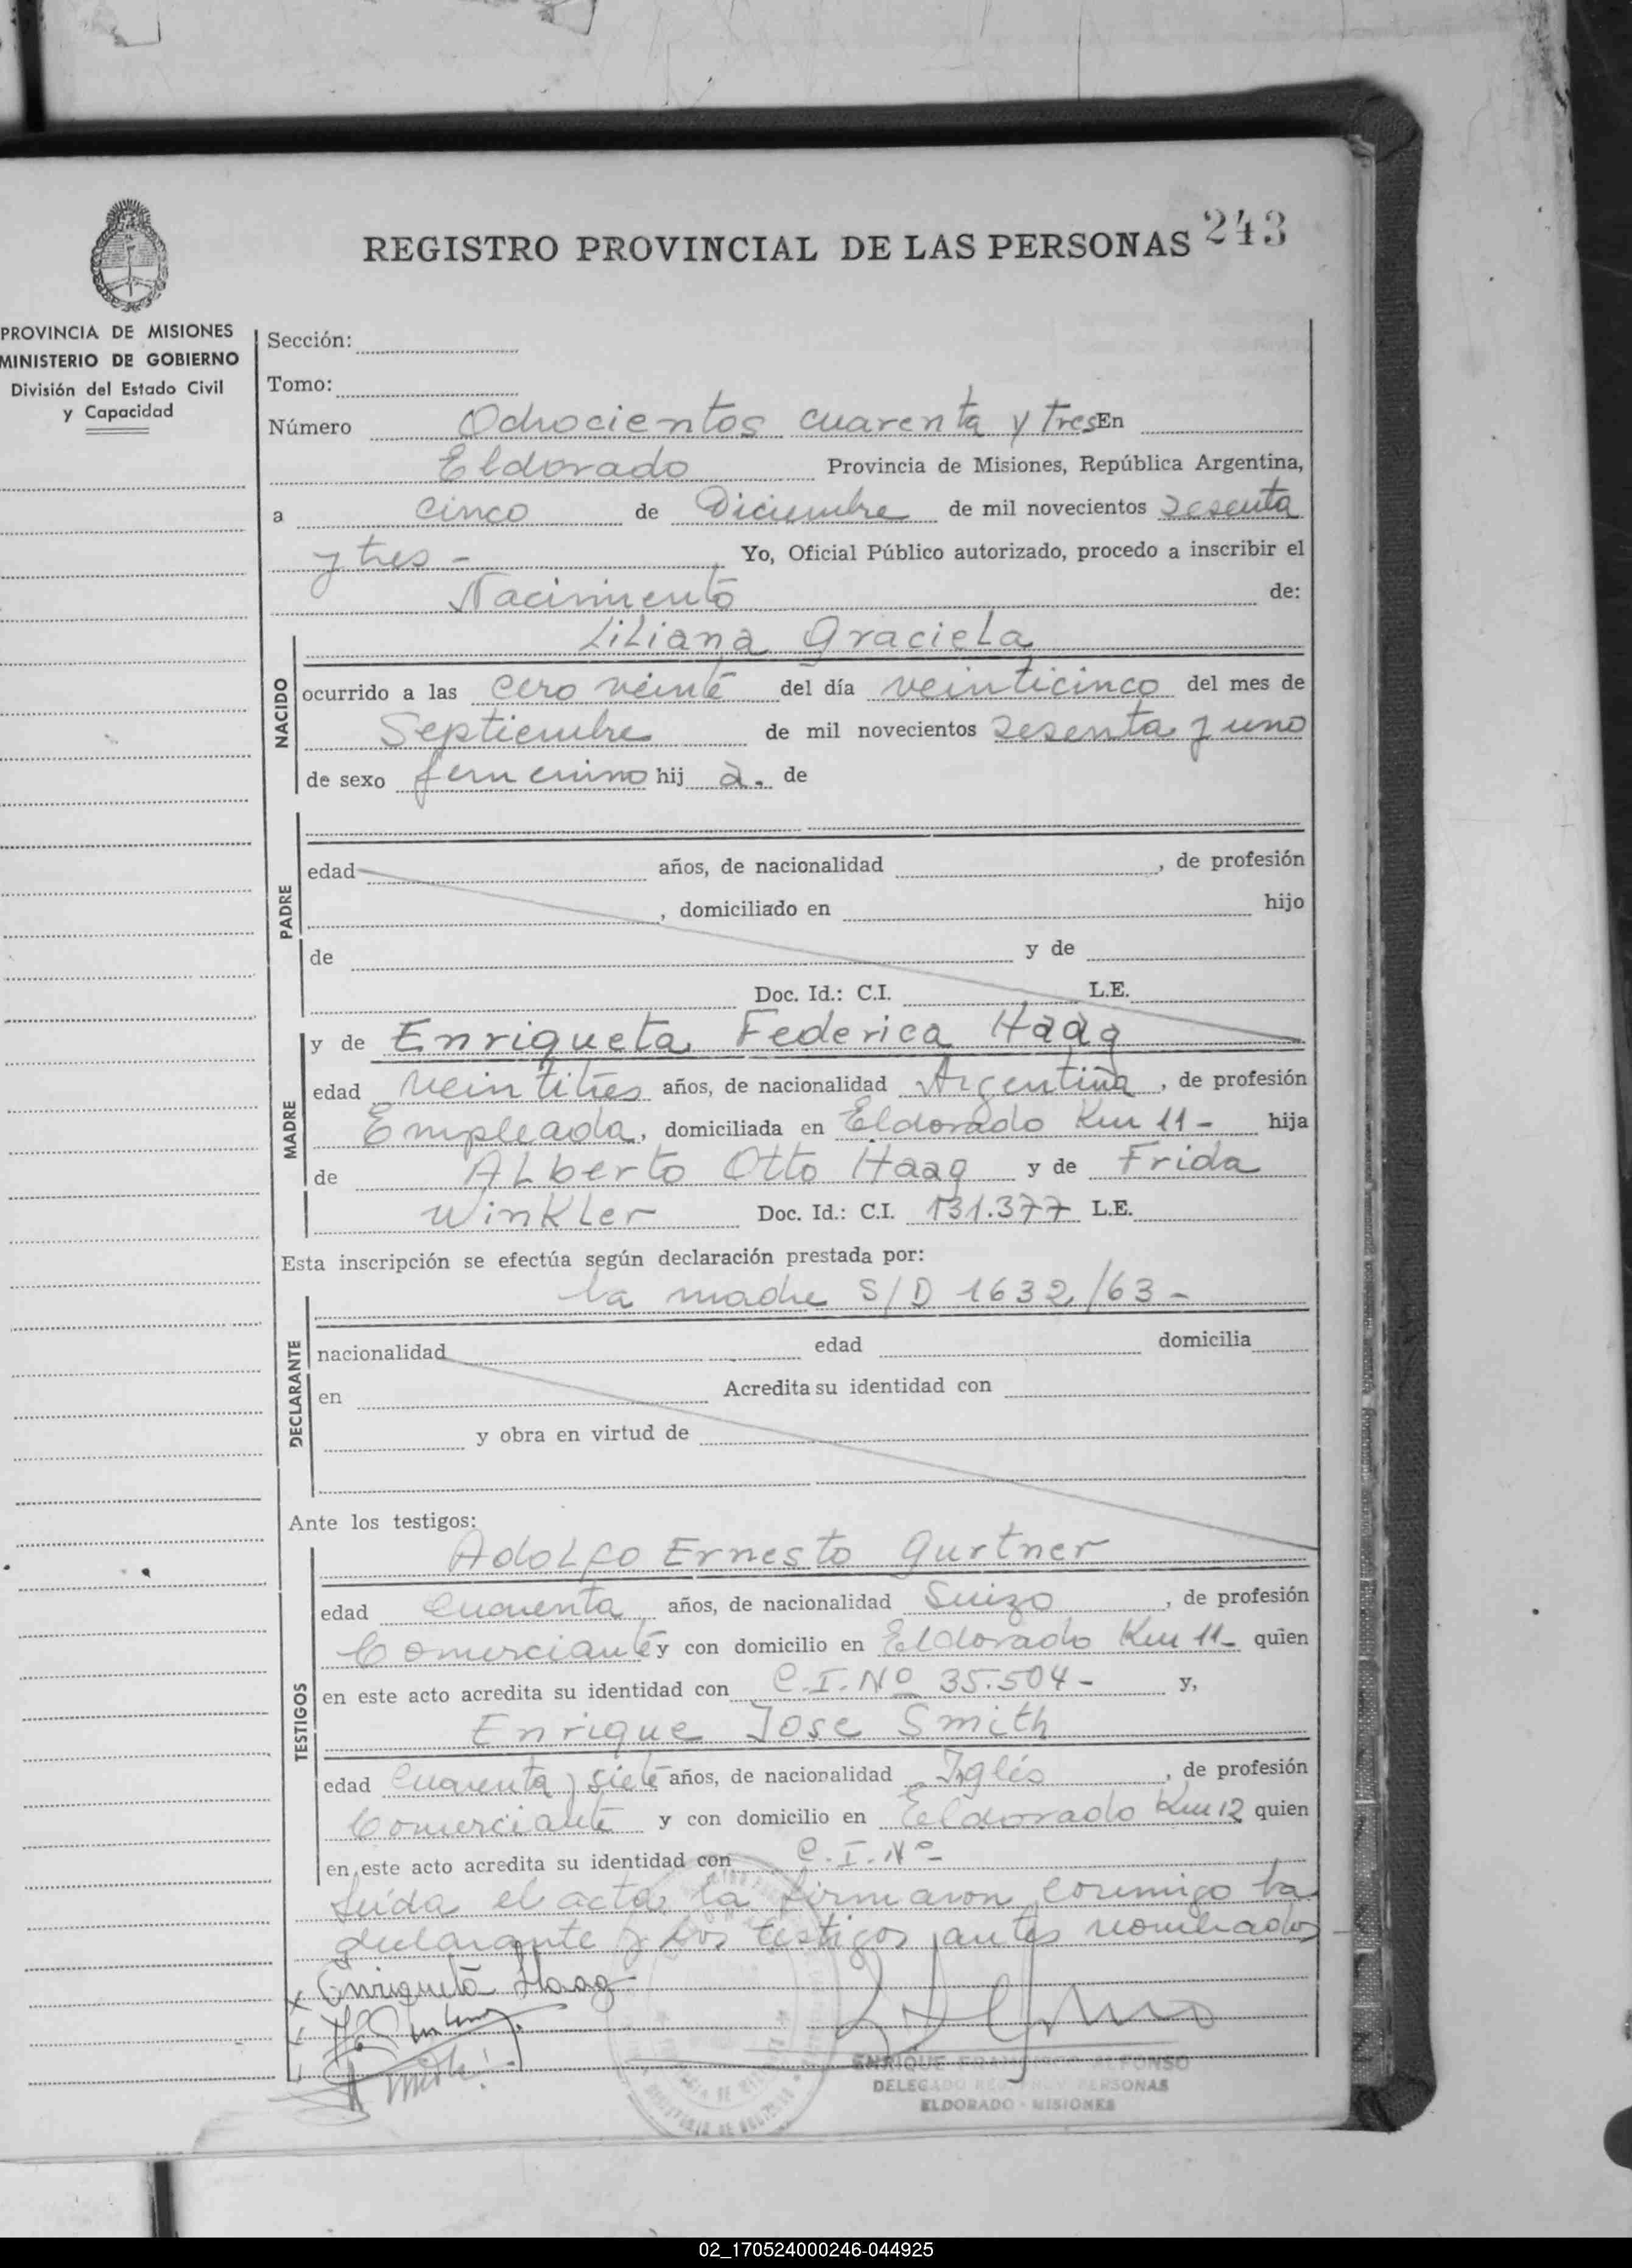 REGISTRO PROVINCIAL DE LAS PERSONAS 243
PROVINCIA DE MISIONES
MINISTERIO DE GOBIERNO
División del Estado Civil
y Capacidad
Sección:
Tomo:
Número Ochocientos cuarenta y tres En
Eldorado Provincia de Misiones, República Argentina,
a cinco de Diciembre de mil novecientos sesenta
y tres - Yo, Oficial Público autorizado, procedo a inscribir el
Nacimiento de:
NACIDO
Liliana Graciela
ocurrido a las cero veinte del día veinticinco del mes de
Septiembre de mil novecientos sesenta y uno
de sexo femenino hij a. de
PADRE
edad años, de nacionalidad , de profesión
, domiciliado en hijo
de y de
Doc. Id.: C.I. L.E.
MADRE
y de Enriqueta Federica Haag
edad veintitres años, de nacionalidad Argentina, de profesión
Empleada, domiciliada en Eldorado Km 11 - hija
de Alberto Otto Haag y de Frida
Winkler Doc. Id.: C.I. 131.377 L.E.
Esta inscripción se efectúa según declaración prestada por:
la madre S/D 1632/63 -
DECLARANTE
nacionalidad edad domicilia
en Acredita su identidad con
y obra en virtud de
Ante los testigos:
TESTIGOS
Adolfo Ernesto Gurtner
edad cuarenta años, de nacionalidad Suizo, de profesión
Comerciante y con domicilio en Eldorado Km 11 - quien
en este acto acredita su identidad con C.I. Nº 35.504 - y,
Enrique Jose Smith
edad cuarenta y siete años, de nacionalidad Inglés, de profesión
Comerciante y con domicilio en Eldorado Km 12 quien
en este acto acredita su identidad con C.I. Nº
Leída el acta, la firmaron conmigo la
declarante y los testigos antes nombrados -
x Enriqueta Haag
Smith
ENRIQUE FRANCISCO ALFONSO
DELEGADO PERSONAS
ELDORADO - MISIONES
02_170524000246-044925